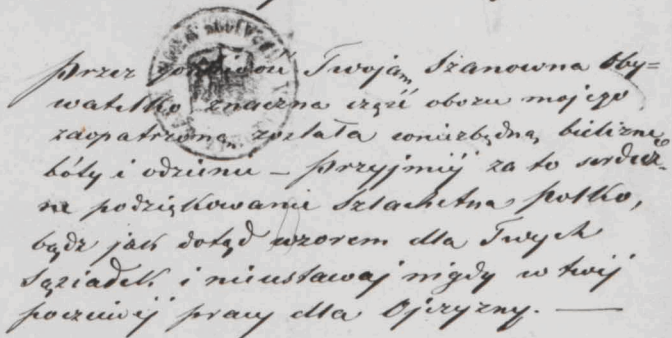 Przez Twoją, Szanowna Oby=
watelko znaczna część obozu mojego
zaopatrzoną została w niezbędną bieliznę
bóty i odzienie – Przyjmij za to serdecz-
ne podziękowanie Szlachetna Polko,
bądź jak dotąd wzorem dla Twych
Sąsiadek i nieustawaj nigdy w twéj
poczciwéj pracy dla Ojczyzny. —